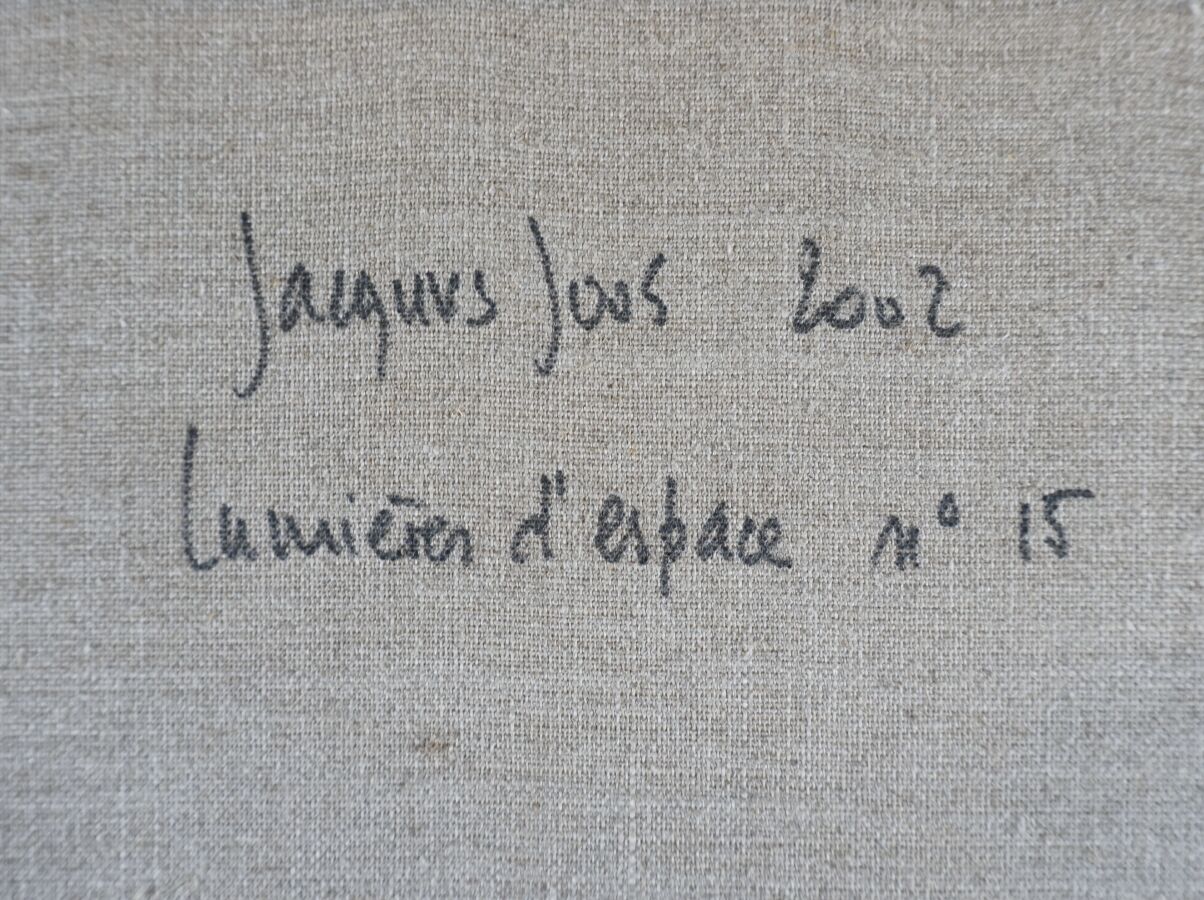 Jacques Joos 2002
Lumières d'espace n° 15